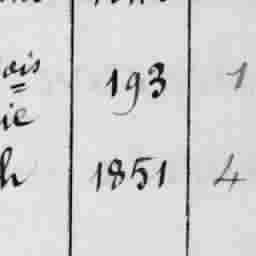 ois 193 1
ie
h 1851 4